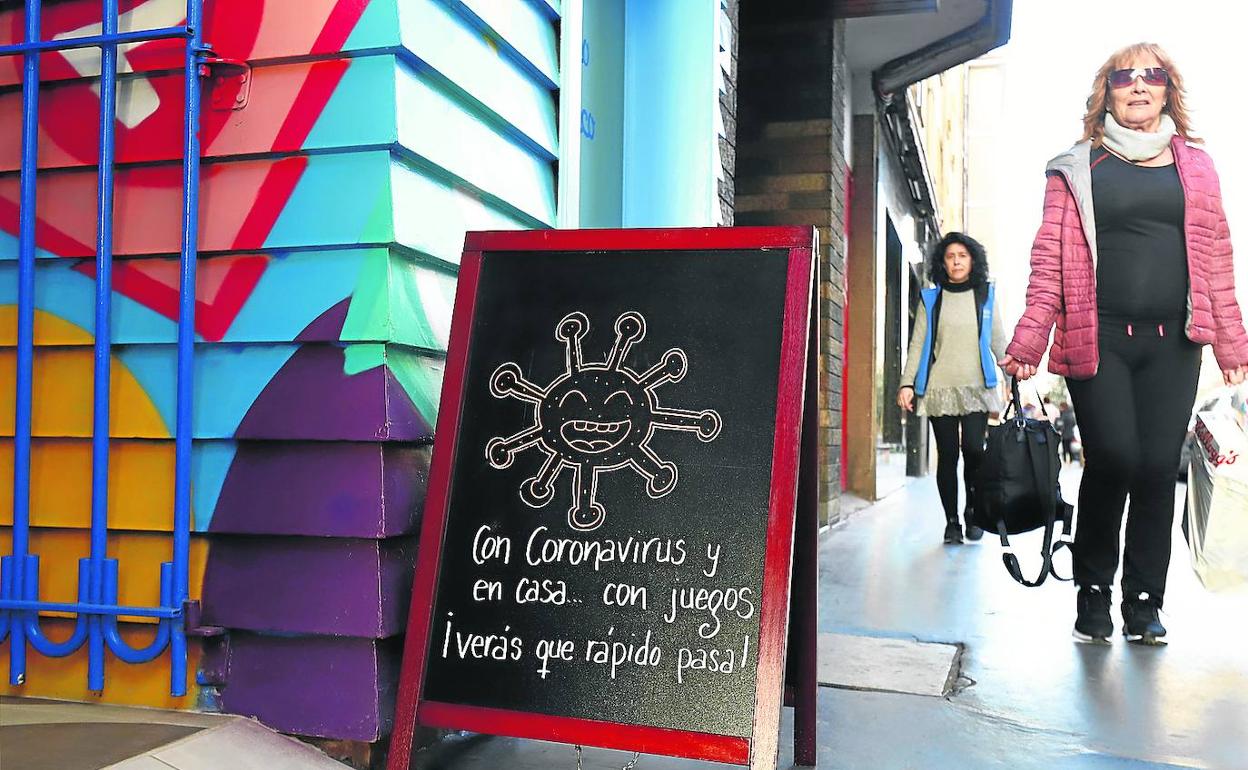 Con Coronavirus y
en casa... con juegos
¡verás que rápido pasa!